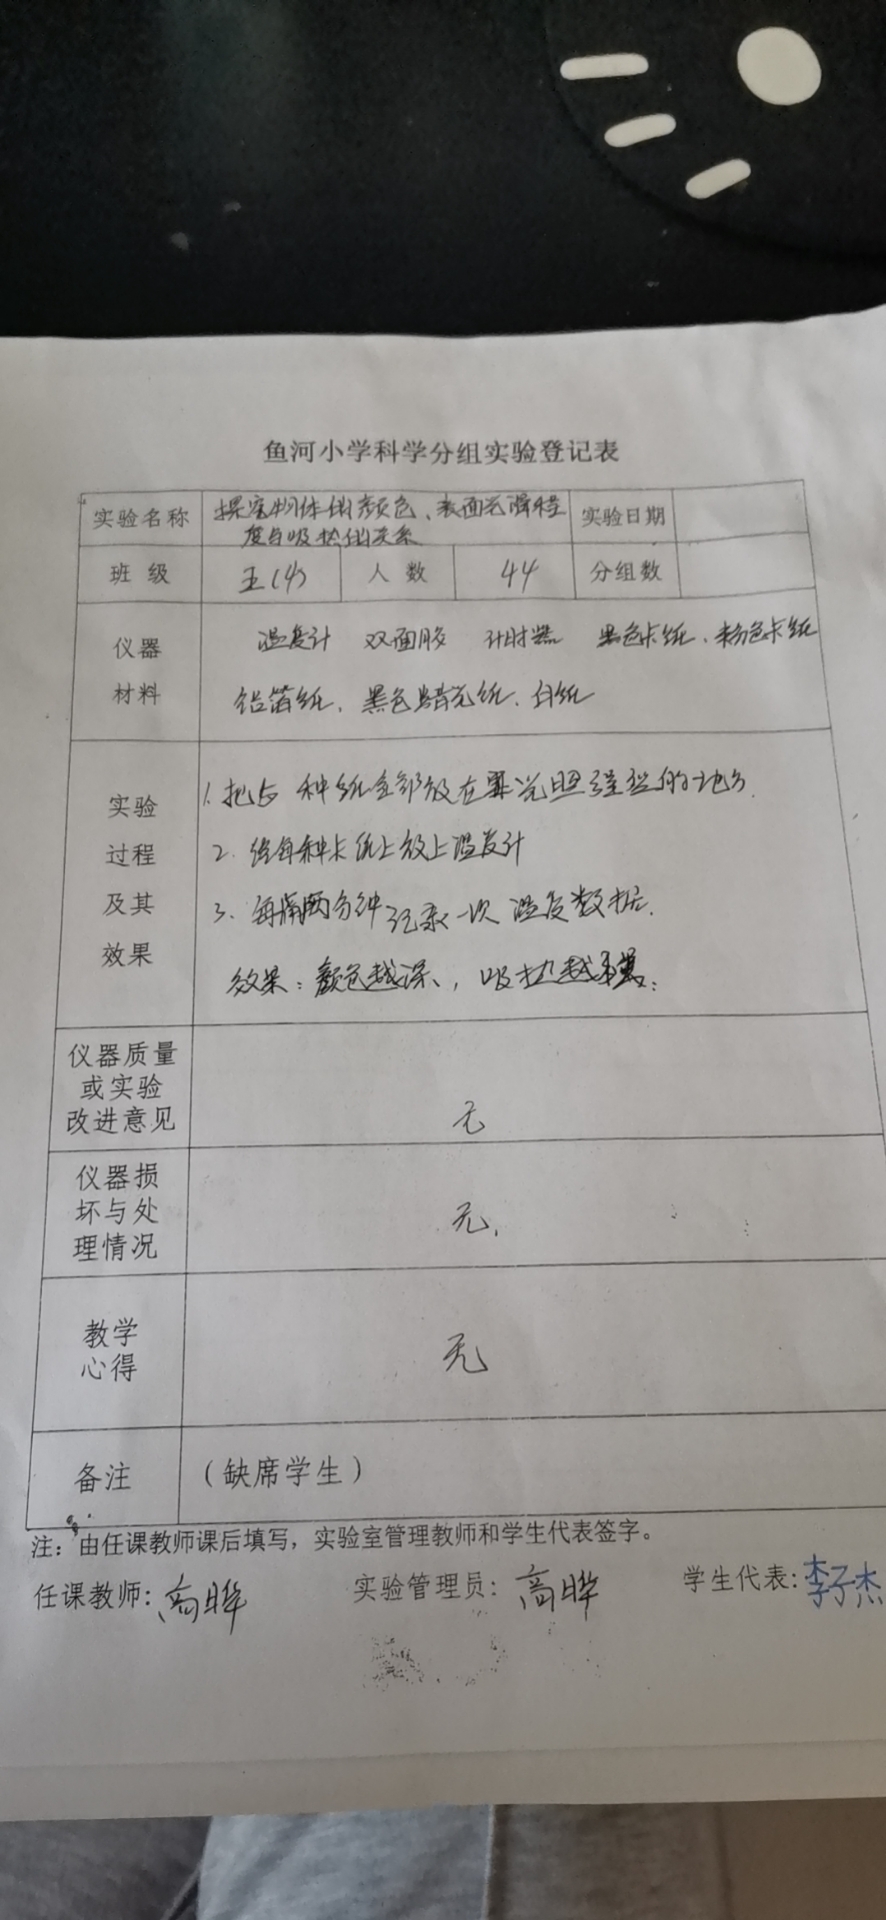 鱼河小学科学分组实验登记表
实验名称 探究物体的颜色、表面光滑程度与吸热的关系 实验日期
班 级 五(4) 人 数 44 分组数
仪器材料 温度计 双面胶 计时器 黑色卡纸、粉色卡纸
铝箔纸、黑色蜡光纸、白纸
实验过程及其效果
1. 把5 种纸全部放在光照强烈的地方.
2. 给每种卡纸上放上温度计
3. 每隔两分钟记录一次 温度数据.
效果：颜色越深、, 吸热越
仪器质量或实验改进意见 无
仪器损坏与处理情况 无.
教学心得 无
备注 （缺席学生）
注：由任课教师课后填写，实验室管理教师和学生代表签字。
任课教师: 高晔 实验管理员: 高晔 学生代表: 李子杰